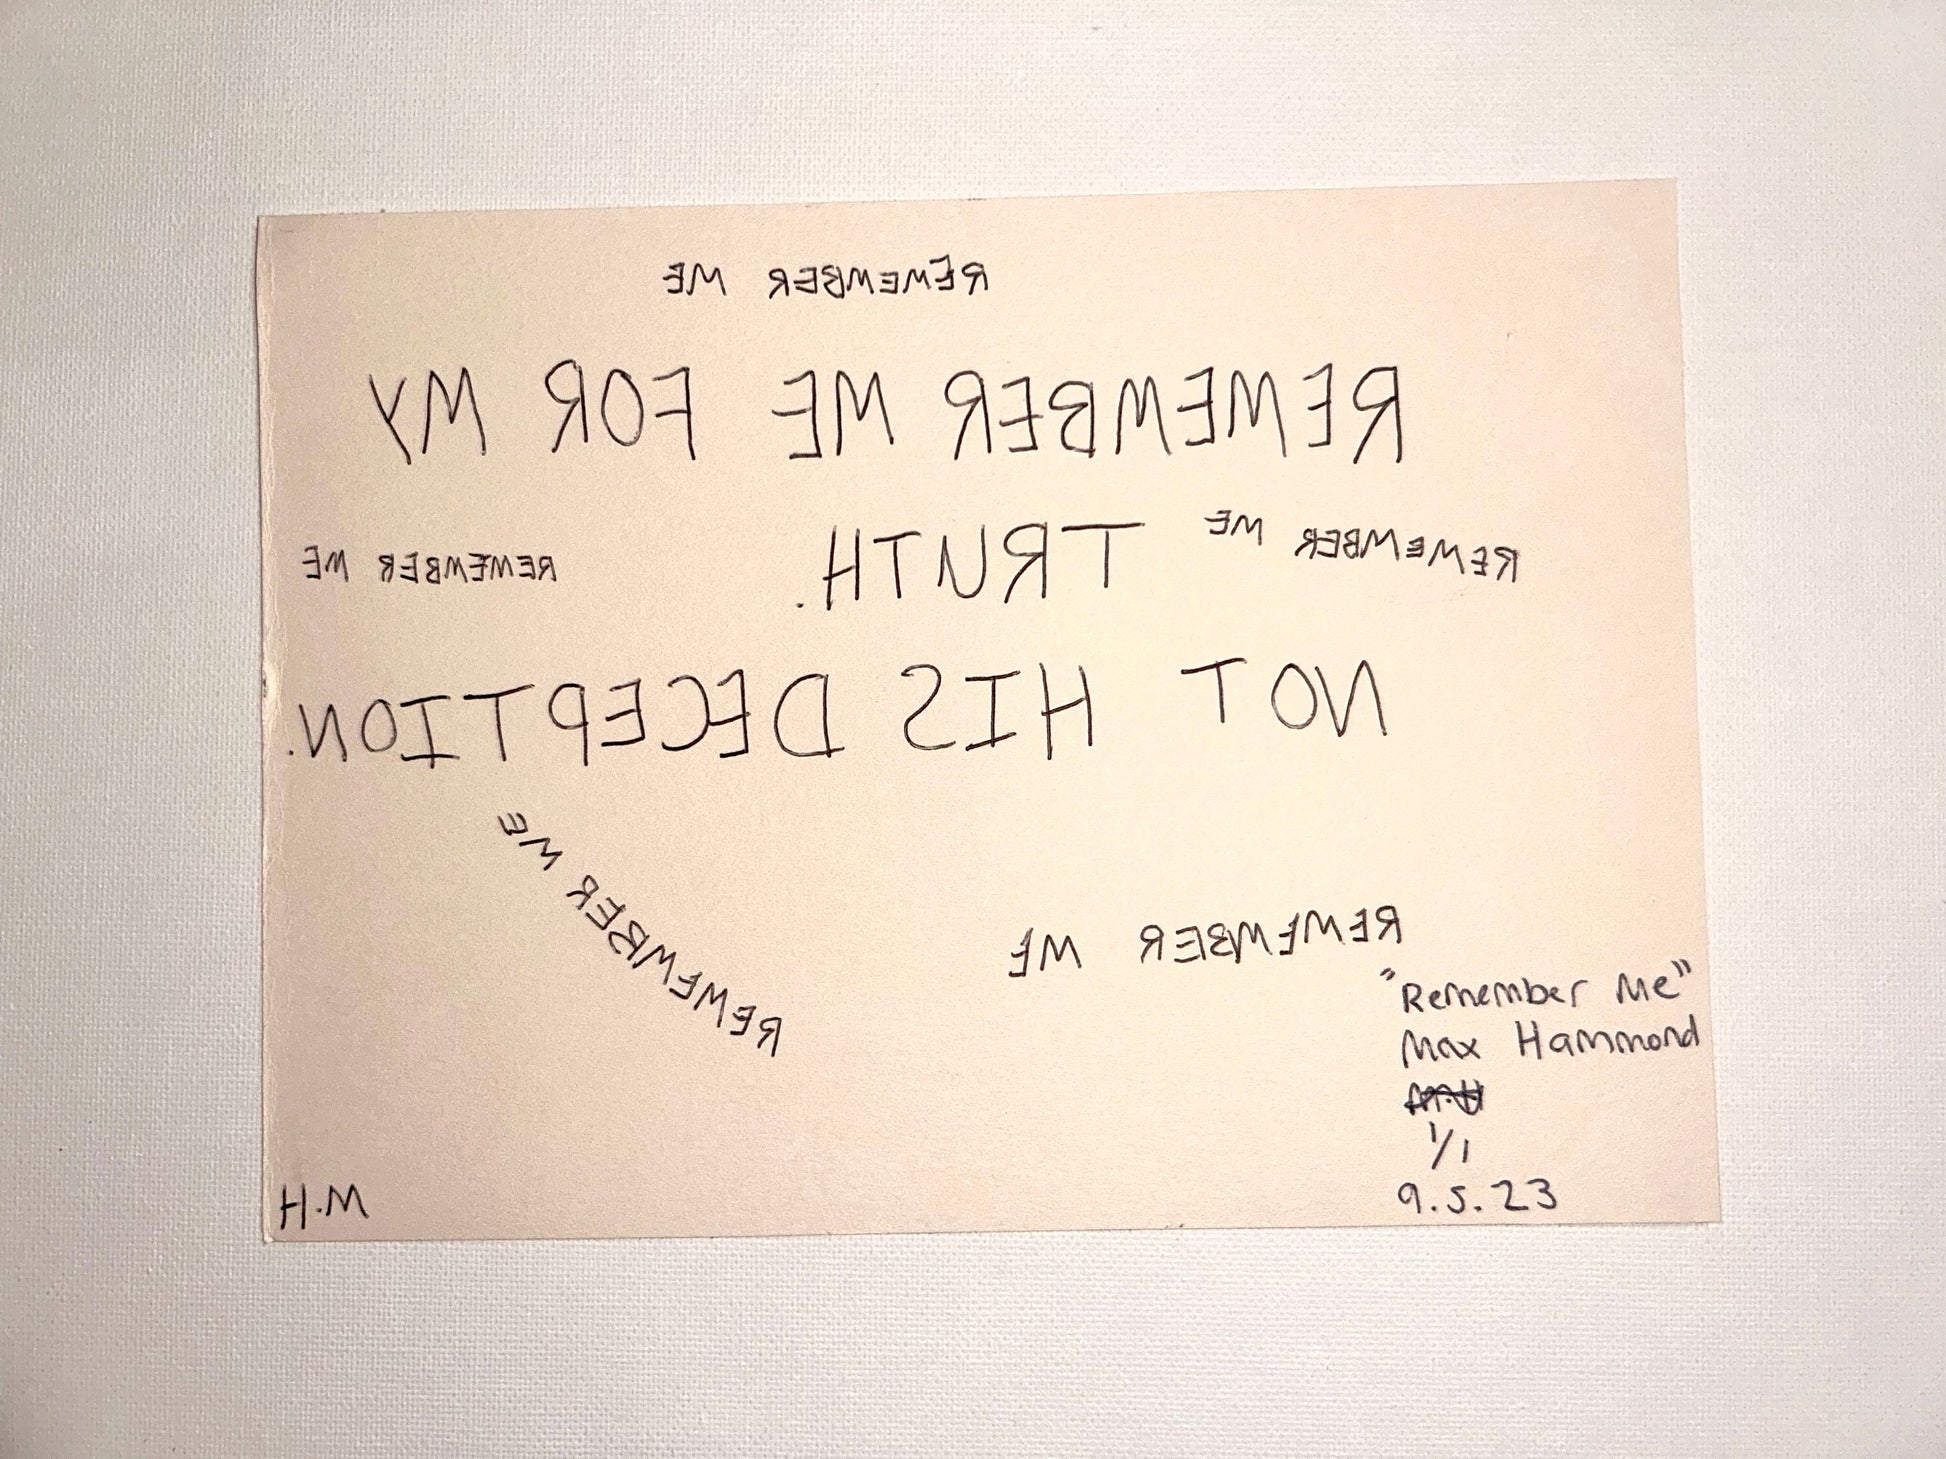 REMEMBER ME
REMEMBER ME FOR MY
REMEMBER ME
TRUTH.
REMEMBER ME
NOT HIS DECEPTION.
REMEMBER ME
REMEMBER ME
"Remember Me"
Max Hammond
1/1
9.5.23
M.H